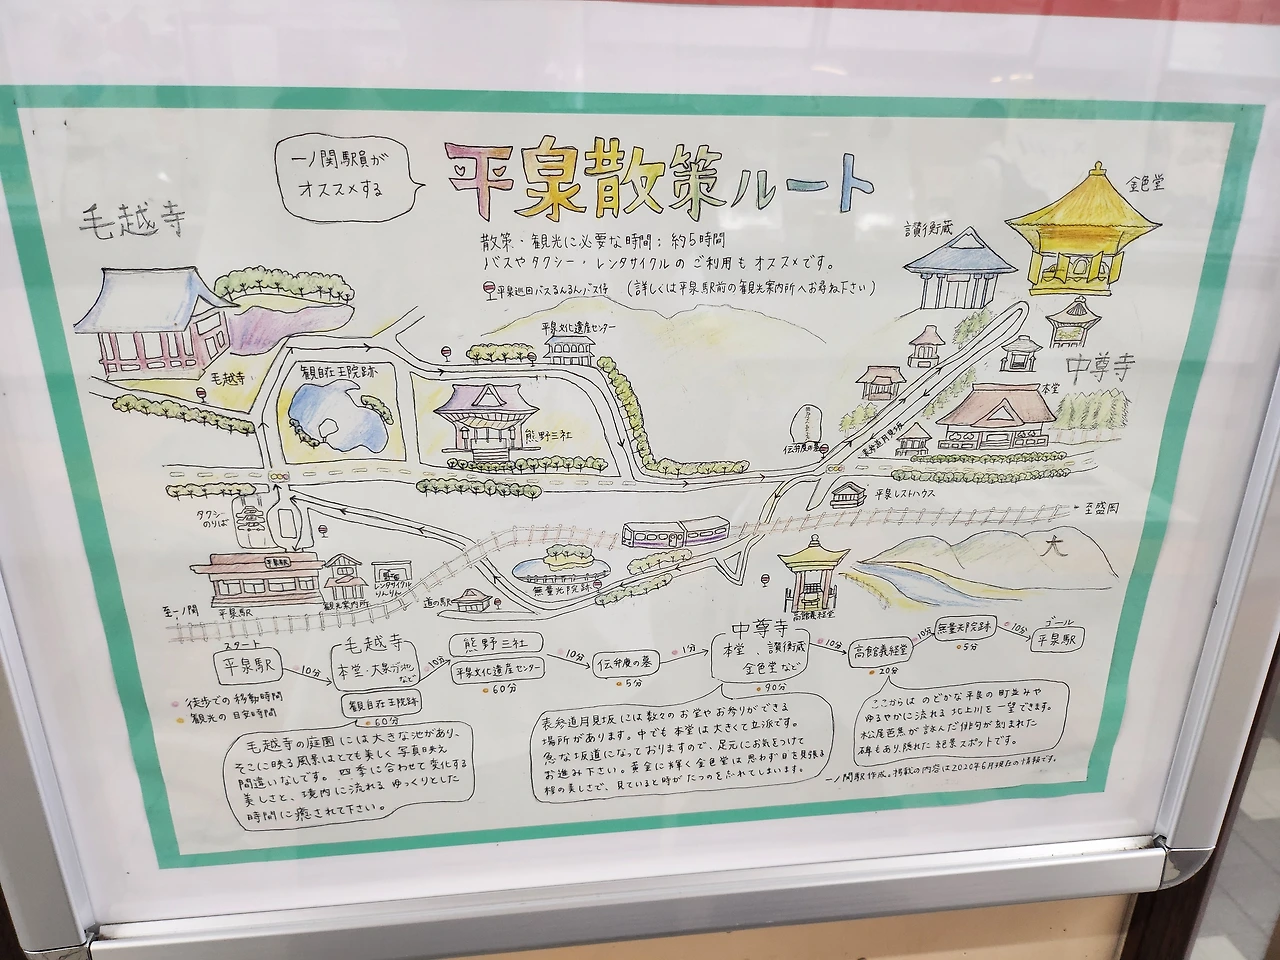 一ノ関駅員が
オススメする
平泉散策ルート
散策・観光に必要な時間：約5時間
バスやタクシー・レンタサイクルのご利用もオススメです。
平泉巡回バスるんるんバス停 (詳しくは平泉駅前の観光案内所へお尋ね下さい)
毛越寺
毛越寺
観自在王院跡
平泉文化遺産センター
熊野三社
讃衡蔵
金色堂
中尊寺
本堂
表参道月見坂
伝弁慶の墓
平泉レストハウス
至盛岡
大
タクシー
のりば
平泉駅
平泉駅
観光案内所
レンタサイクル
りんりん
至一ノ関
道の駅
無量光院跡
高館義経堂
スタート
平泉駅
10分
毛越寺
本堂・大泉が池
など
観自在王院跡
60分
10分
熊野三社
平泉文化遺産センター
60分
10分
伝弁慶の墓
5分
1分
中尊寺
本堂、讃衡蔵
金色堂など
90分
10分
高館義経堂
20分
10分
無量光院跡
5分
10分
ゴール
平泉駅
徒歩での移動時間
観光の目安時間
毛越寺の庭園には大きな池があり、
そこに映る風景はとても美しく写真映え
間違いなしです。四季に合わせて変化する
美しさと、境内に流れるゆっくりとした
時間に癒されて下さい。
表参道月見坂には数々のお堂やお参りができる
場所があります。中でも本堂は大きくて立派です。
急な坂道になっておりますので、足元にお気をつけて
お進み下さい。黄金に輝く金色堂は思わず目を見張る
程の美しさで、見ていると時がたつのを忘れてしまいます。
ここからはのどかな平泉の町並みや
ゆるやかに流れる北上川を一望できます。
松尾芭蕉が詠んだ俳句が刻まれた
碑もあり、隠れた絶景スポットです。
一ノ関駅作成。掲載の内容は2020年6月現在の情報です。